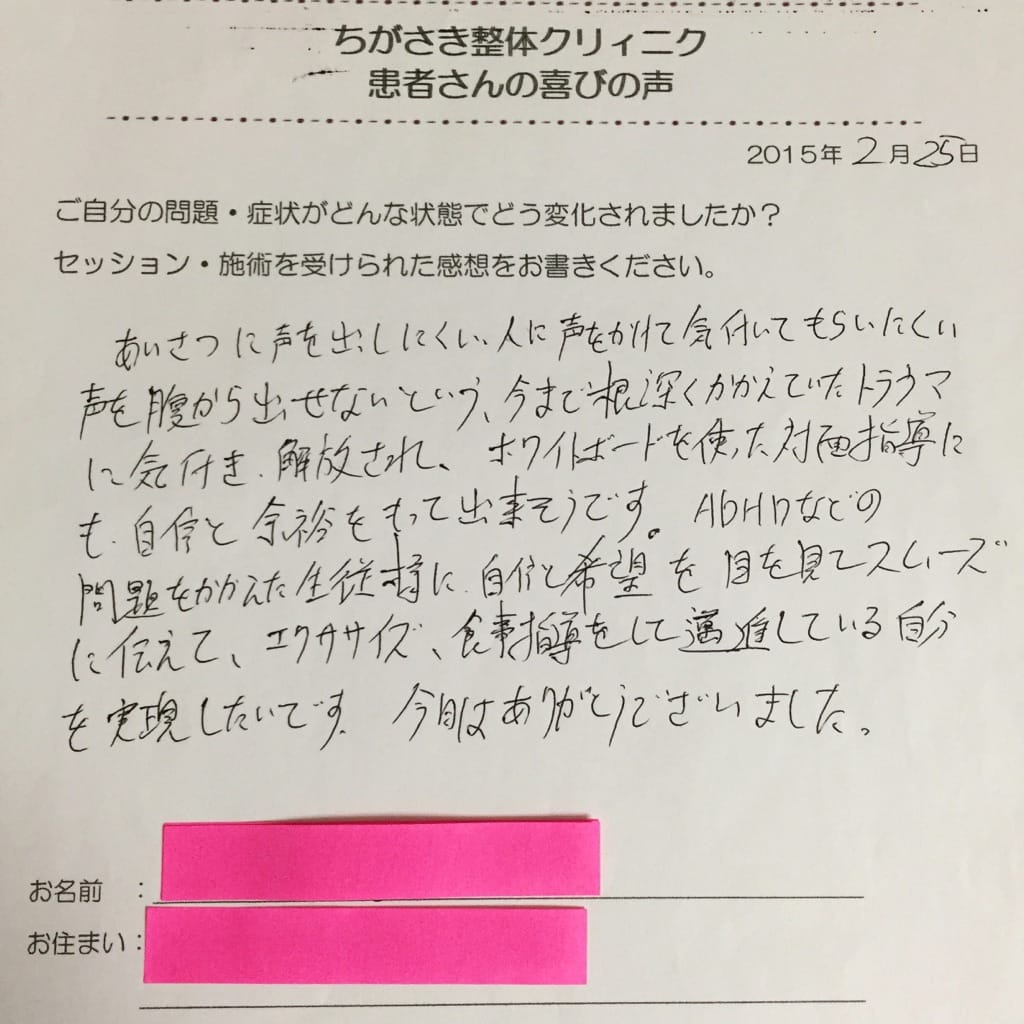 ちがさき整体クリィニク
患者さんの喜びの声
2015年 2月25日
ご自分の問題・症状がどんな状態でどう変化されましたか？
セッション・施術を受けられた感想をお書きください。
あいさつに声を出しにくい、人に声をかけて気付いてもらいたくい
声を腹から出せないという、今まで根深くかかえていたトラウマ
に気付き、解放され、ホワイトボードを使った対面指導に
も、自信と余裕をもって出来そうです。ADHDなどの
問題をかかえた生徒様に、自信と希望を目を見てスムーズ
に伝えて、エクササイズ、食事指導をして邁進している自分
を実現したいです。今日はありがとうございました。
お名前　：
お住まい：